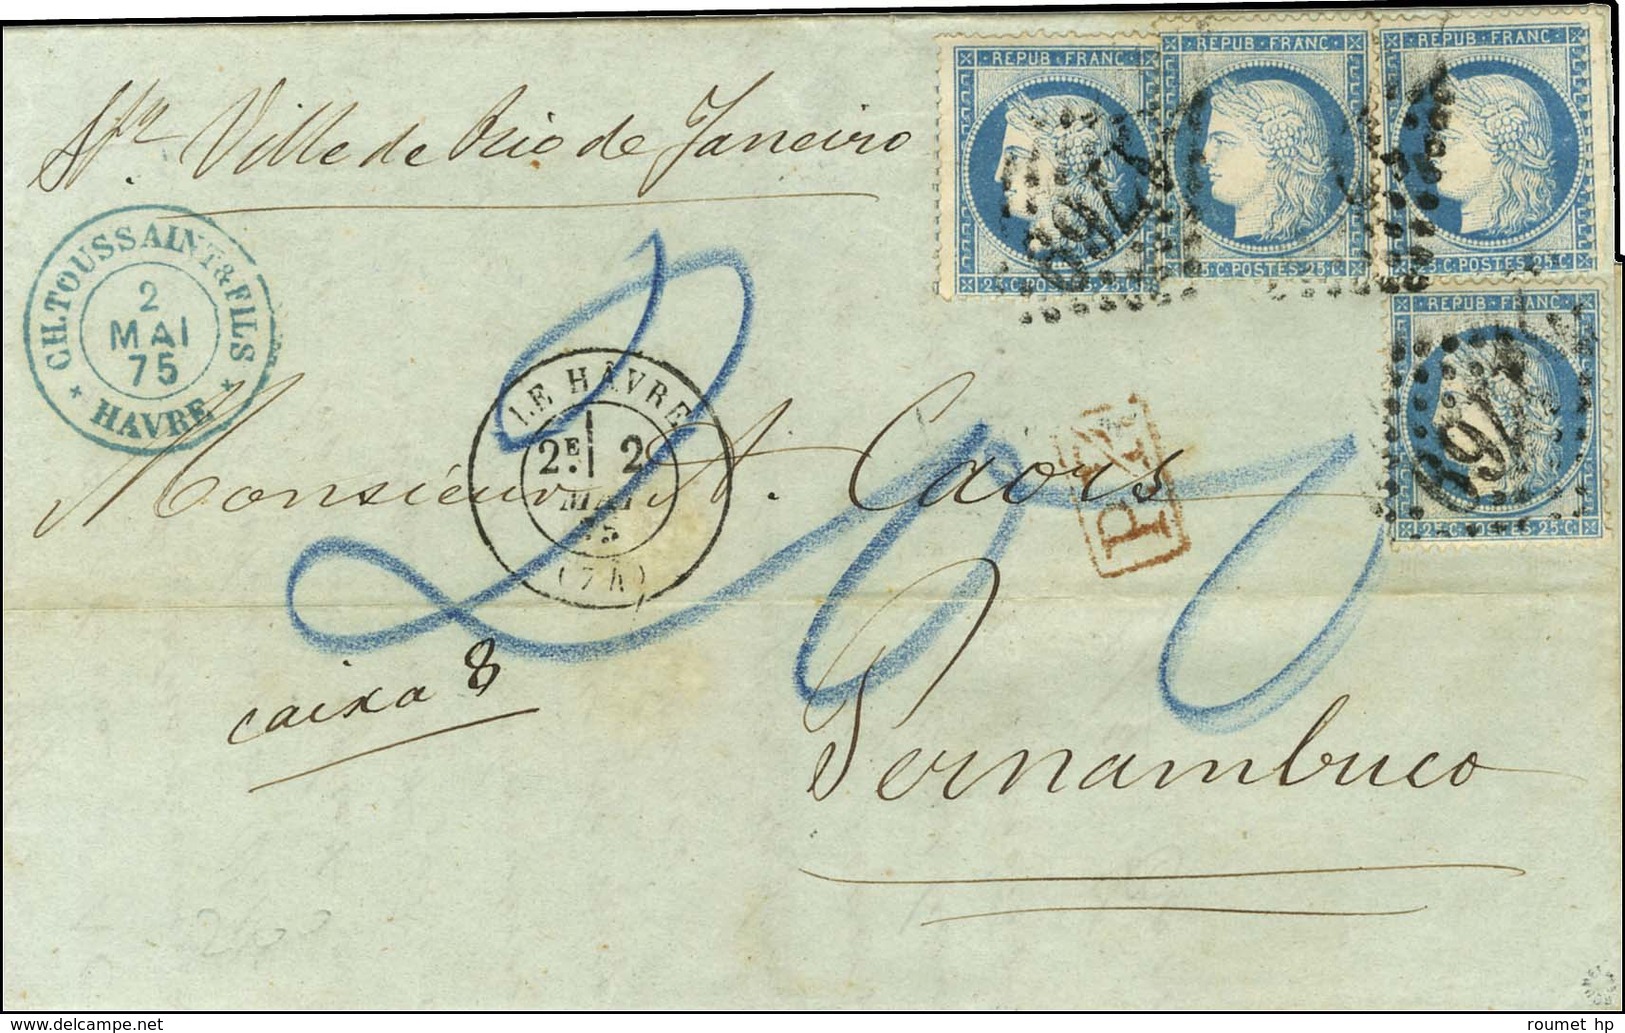 Str Ville de Rio de Janeiro
REPUB · FRANC
25 C · POSTES · 25 C
REPUB · FRANC
5 C · POSTES · 25 C
REPUB · FRANC
5 C · POSTES · 25 C
1769
CH. TOUSSAINT & FILS
2
MAI
75
* HAVRE *
REPUB · FRANC
25 C · POSTES · 25 C
1769
LE HÂVRE
2E 2
MAI
75
(74)
P.D.
Monsieur A. Caors
Pernambuco
caixa 8
roumet hp